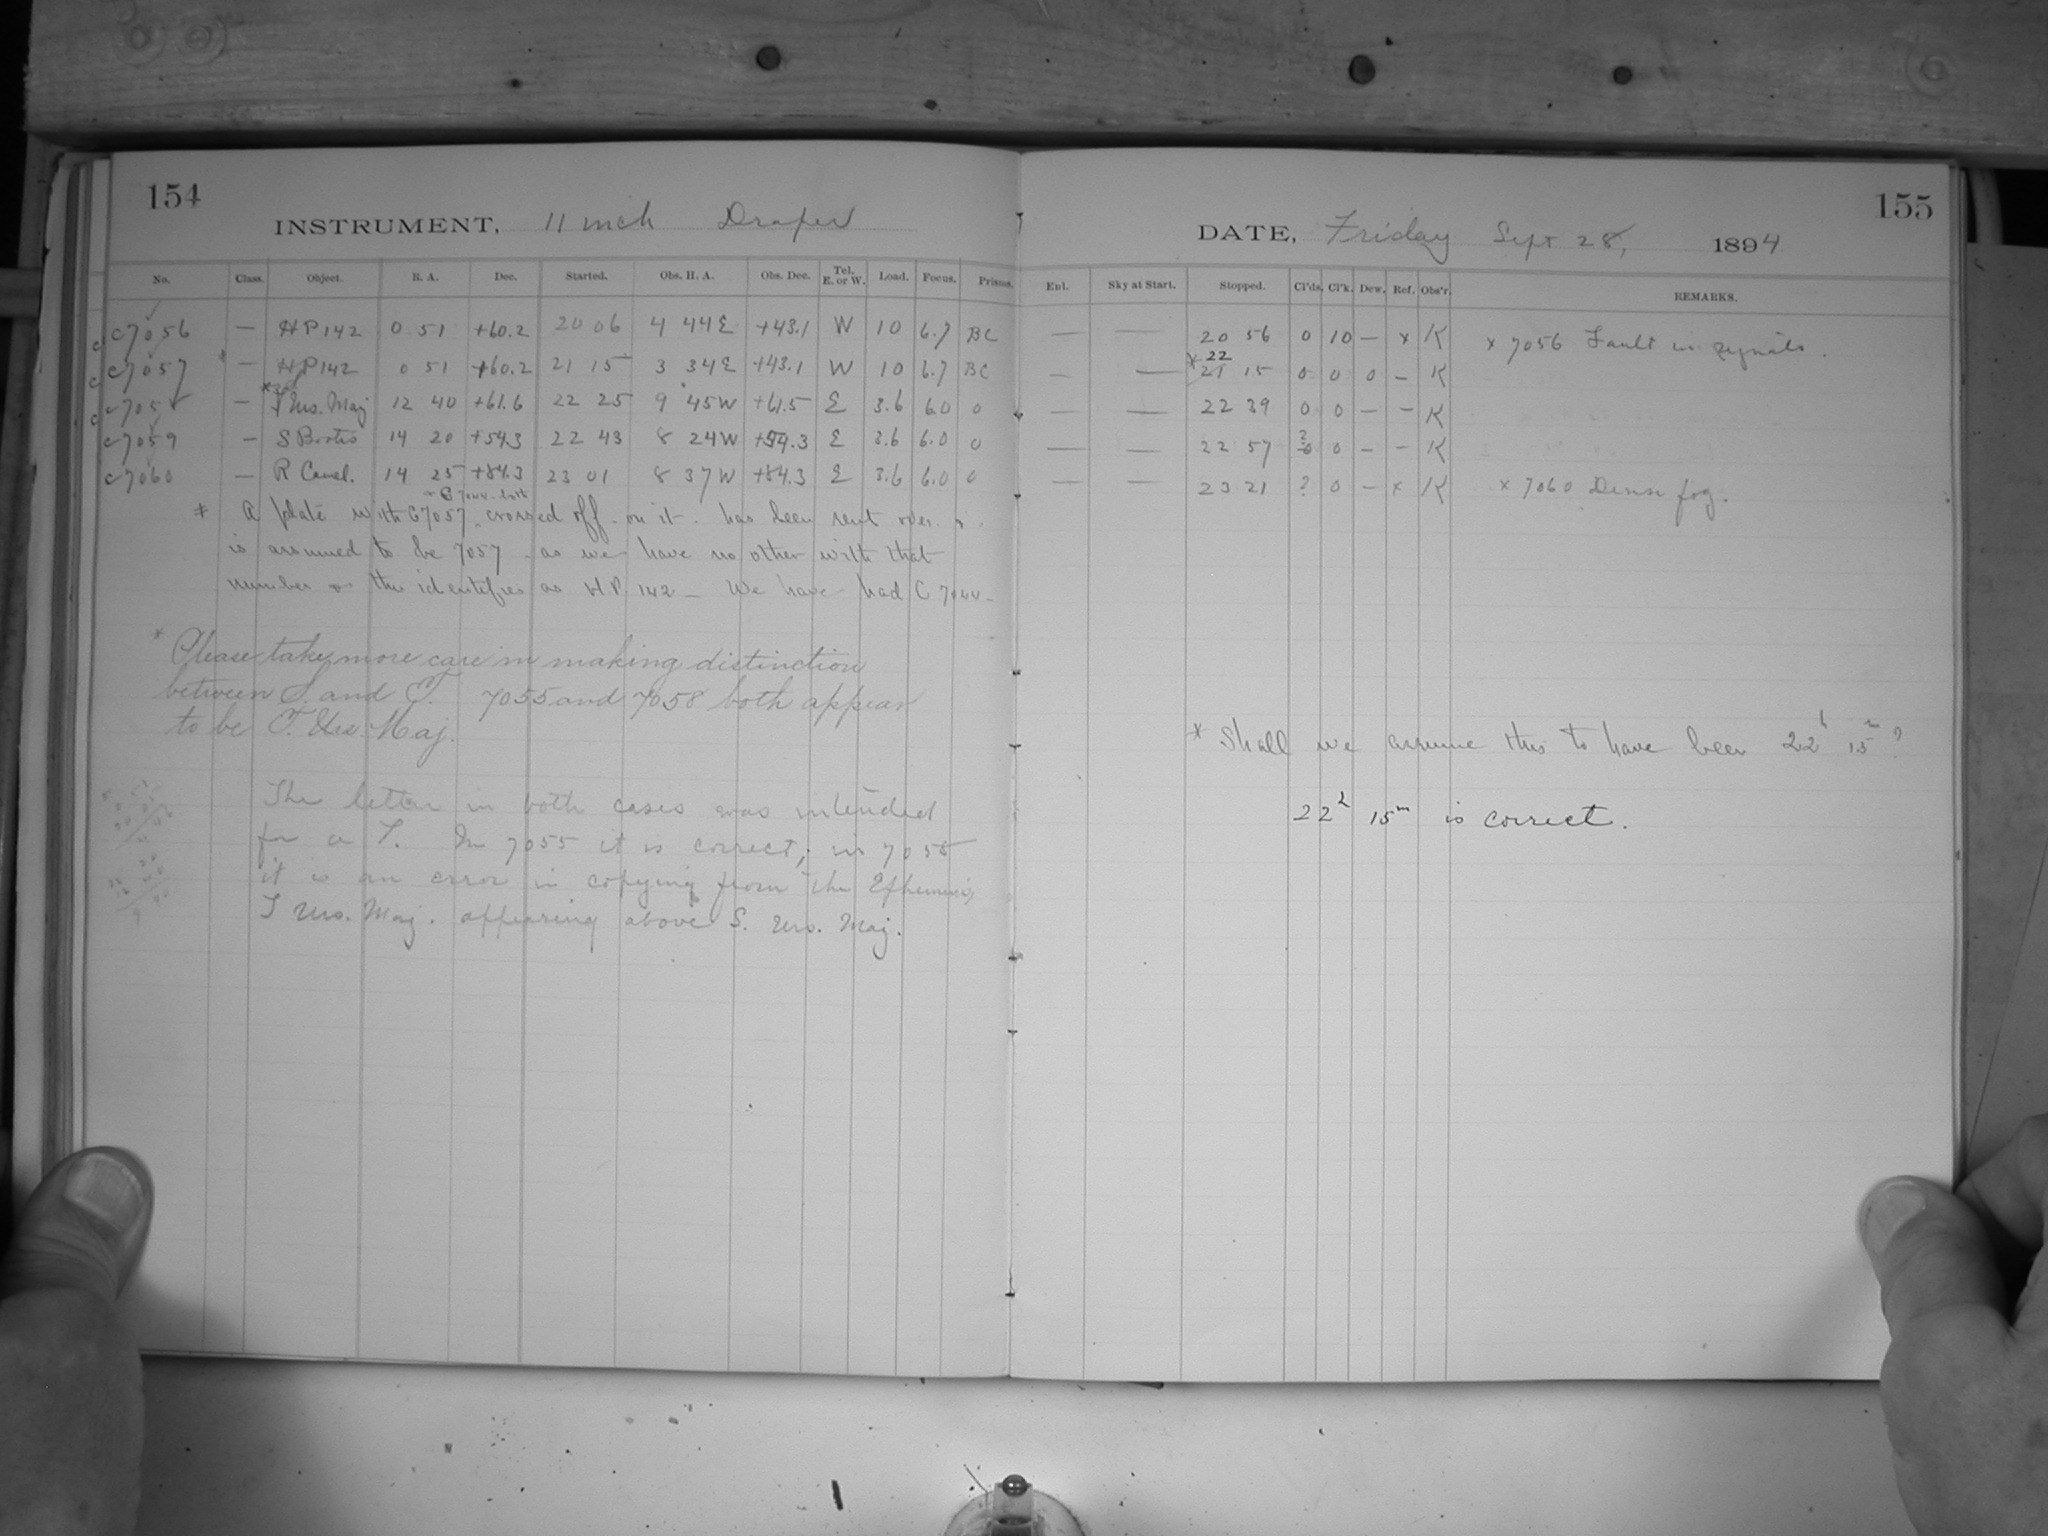 154
INSTRUMENT, 11 inch Draper
No. Class. Object. R. A. Dec. Started. Obs. H. A. Obs. Dec. Tel. E. or W. Load. Focus. Prisms.
c7056 — HP 142 0 51 +60.2 20 06 4 44E +43.1 W 10 6.7 BC
c7057 — HP 142 0 51 +60.2 21 15 3 34E +43.1 W 10 6.7 BC
c7058 — Urs. Maj 12 40 +61.6 22 25 9 45W +61.5 E 3.6 6.0 0
c7059 — S Bootis 14 20 +54.3 22 43 8 24W +54.3 E 3.6 6.0 0
c7060 — R Camel. 14 25 +84.3 23 01 8 37W +84.3 E 3.6 6.0 0
* A plate with C7057 crossed off on it has been sent over &
is assumed to be 7057 as we have no other with that
number & this identifies as H.P. 142 — We have had C 7044 —
* Please take more care in making distinction
between S. and T. 7055 and 7058 both appear
to be T. Urs. Maj.
The letter in both cases was intended
for a T. In 7055 it is correct, in 7058
it is an error in copying from the Ephemeris,
T Urs. Maj. appearing above S. Urs. Maj.
155
DATE, Friday Sept 28, 1894
Enl. Sky at Start. Stopped. Cl'ds. Cl'k. Dew. Ref. Obs'r. REMARKS.
— — 20 56 0 10 — x K x 7056 Fault in signals.
* 22
— — 21 15 0 0 0 — K
— — 22 39 0 0 — — K
— — 22 57 ? 0 0 — — K
— — 23 21 ? 0 — x K x 7060 Dense fog.
* Shall we assume this to have been 22h 15m?
22h 15m is correct.